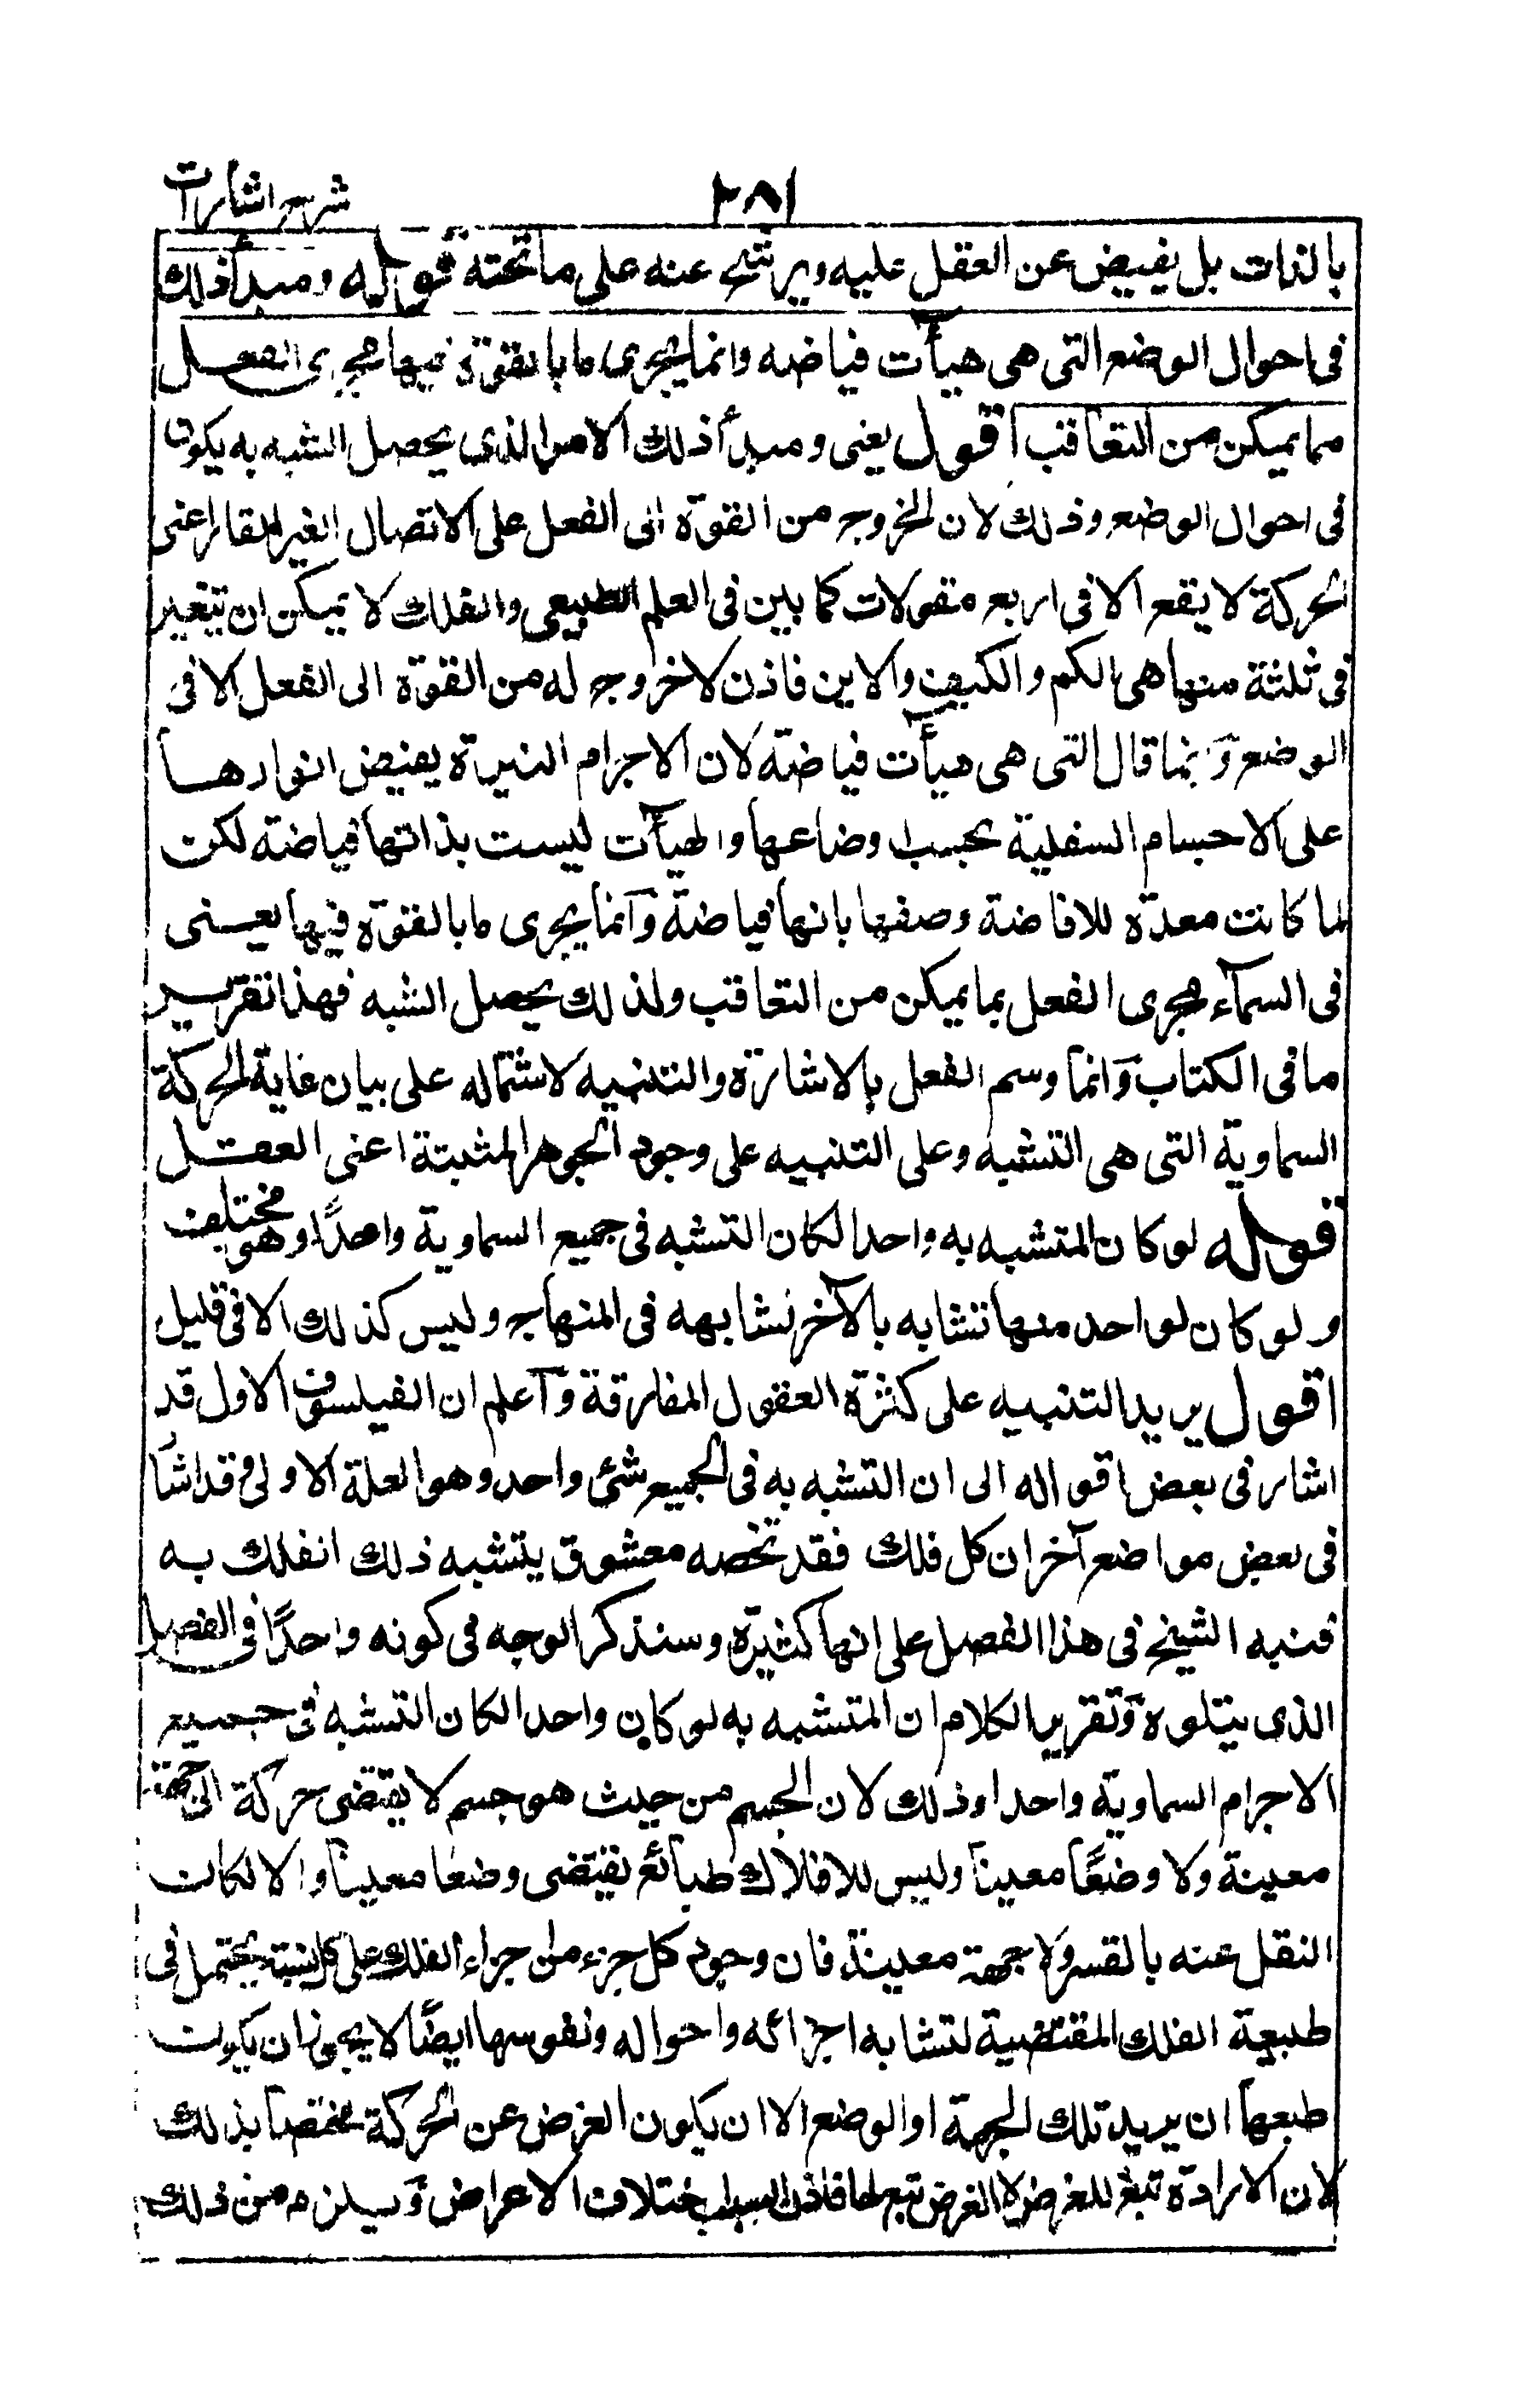 شرح اشارات
٢٨١
بالذات بل يفيض عن العقل عليه ويرتشح عنه على ما تحته قوله ومبدأ ذلك
فى احوال الوضع التى هى هيأٰت فياضه وانما يجرى ما بالقوّة فيها مجرى الفعل
مما يمكن من التعاقب اقول يعنى ومبدأ ذلك الامر الذى يحصل الشبه به يكون
فى احوال الوضع وذلك لان الخروج من القوّة الى الفعل على الاتصال الغير القار اعنى
الحركة لا يقع الا فى اربع مقولات كما بين فى العلم الطبيعى والفلك لا يمكن ان يتغير
فى ثلثة منها هى الكم والكيف والاين فاذن لا خروج له من القوّة الى الفعل الا فى
الوضع وَانما قال التى هى هيأٰت فياضة لان الاجرام النيرة يفيض انوارها
على الاجسام السفلية بحسب اوضاعها والهيأٰت ليست بذاتها فياضة لكن
لما كانت معدّة للافاضة وصفها بانها فياضة وَانما يجرى ما بالقوّة فيها يعنى
فى السمآء مجرى الفعل بما يمكن من التعاقب ولذلك يحصل الشبه فهذا تقرير
ما فى الكتاب وَانما وسم الفعل بالاشارة والتنبيه لاشتماله على بيان غاية الحركة
السماوية التى هى التشبه وعلى التنبيه على وجود الجوهر المثبتة اعنى العقل
قوله لو كان المتشبه به واحدا لكان التشبه فى جميع السماوية واحدًا وهى مختلف
ولو كان لواحد منها تشابه بالآخر نشابهه فى المنهاج وليس كذلك الا فى قليل
اقول يريد التنبيه على كثرة العقول المفارقة وَاعلم ان الفيلسوف الاول قد
اشار فى بعض اقواله الى ان التشبه به فى الجميع شئ واحد وهو العلة الاولى وقد اشا
فى بعض مواضع آخر ان كل فلك فقد تخصه معشوق يتشبه ذلك الفلك به
فنبه الشيخ فى هذا الفصل على انها كثيرة وسنذكر الوجه فى كونه واحدًا فى الفصل
الذى يتلوه وَتقرير الكلام ان المتشبه به لو كان واحدا لكان التشبه فى جميع
الاجرام السماوية واحدا وذلك لان الجسم من حيث هو جسم لا يقتضى حركة الى جهة
معينة ولا وضعًا معينا وليس للافلاك طبائع يقتضى وضعا معينا والا لكانت
النقل عنه بالقسر ولا جهة معينة فان وجود كل جزء من اجزاء الفلك على كل نسبة يحتمل فى
طبيعة الفلك المقتضية لتشابه اجزائه واحواله ونفوسها ايضًا لا يجوز ان يكون
طبعها ان يريد تلك الجهة او الوضع الا ان يكون الغرض عن الحركة مختصا بذلك
لان الارادة تبع للغرض لا الغرض تبع لها فاذن السبب اختلاف الاغراض وَيلزمه من ذلك